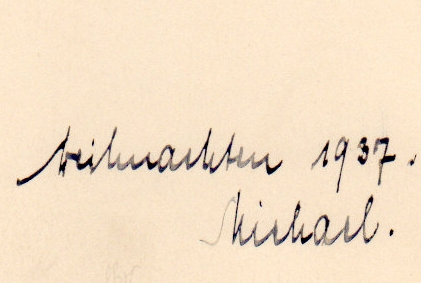 Weihnachten 1937.
Michael.